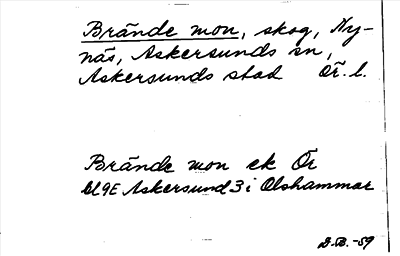 Brände mon, skog, Ny-
näs, Askersunds sn,
Askersunds stad Ör. l.
Brände mon ek Ör
9E Askersund 3 i Olshammar
D.B. -59